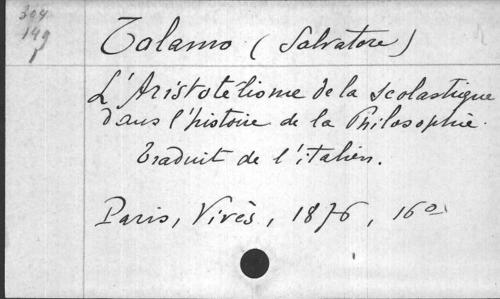 304
149
Talamo (Salvatore)
L'Aristotélisme de la scolastique
dans l'histoire de la Philosophie.
Traduit de l'italien.
Paris, Vivès, 1876, 16º